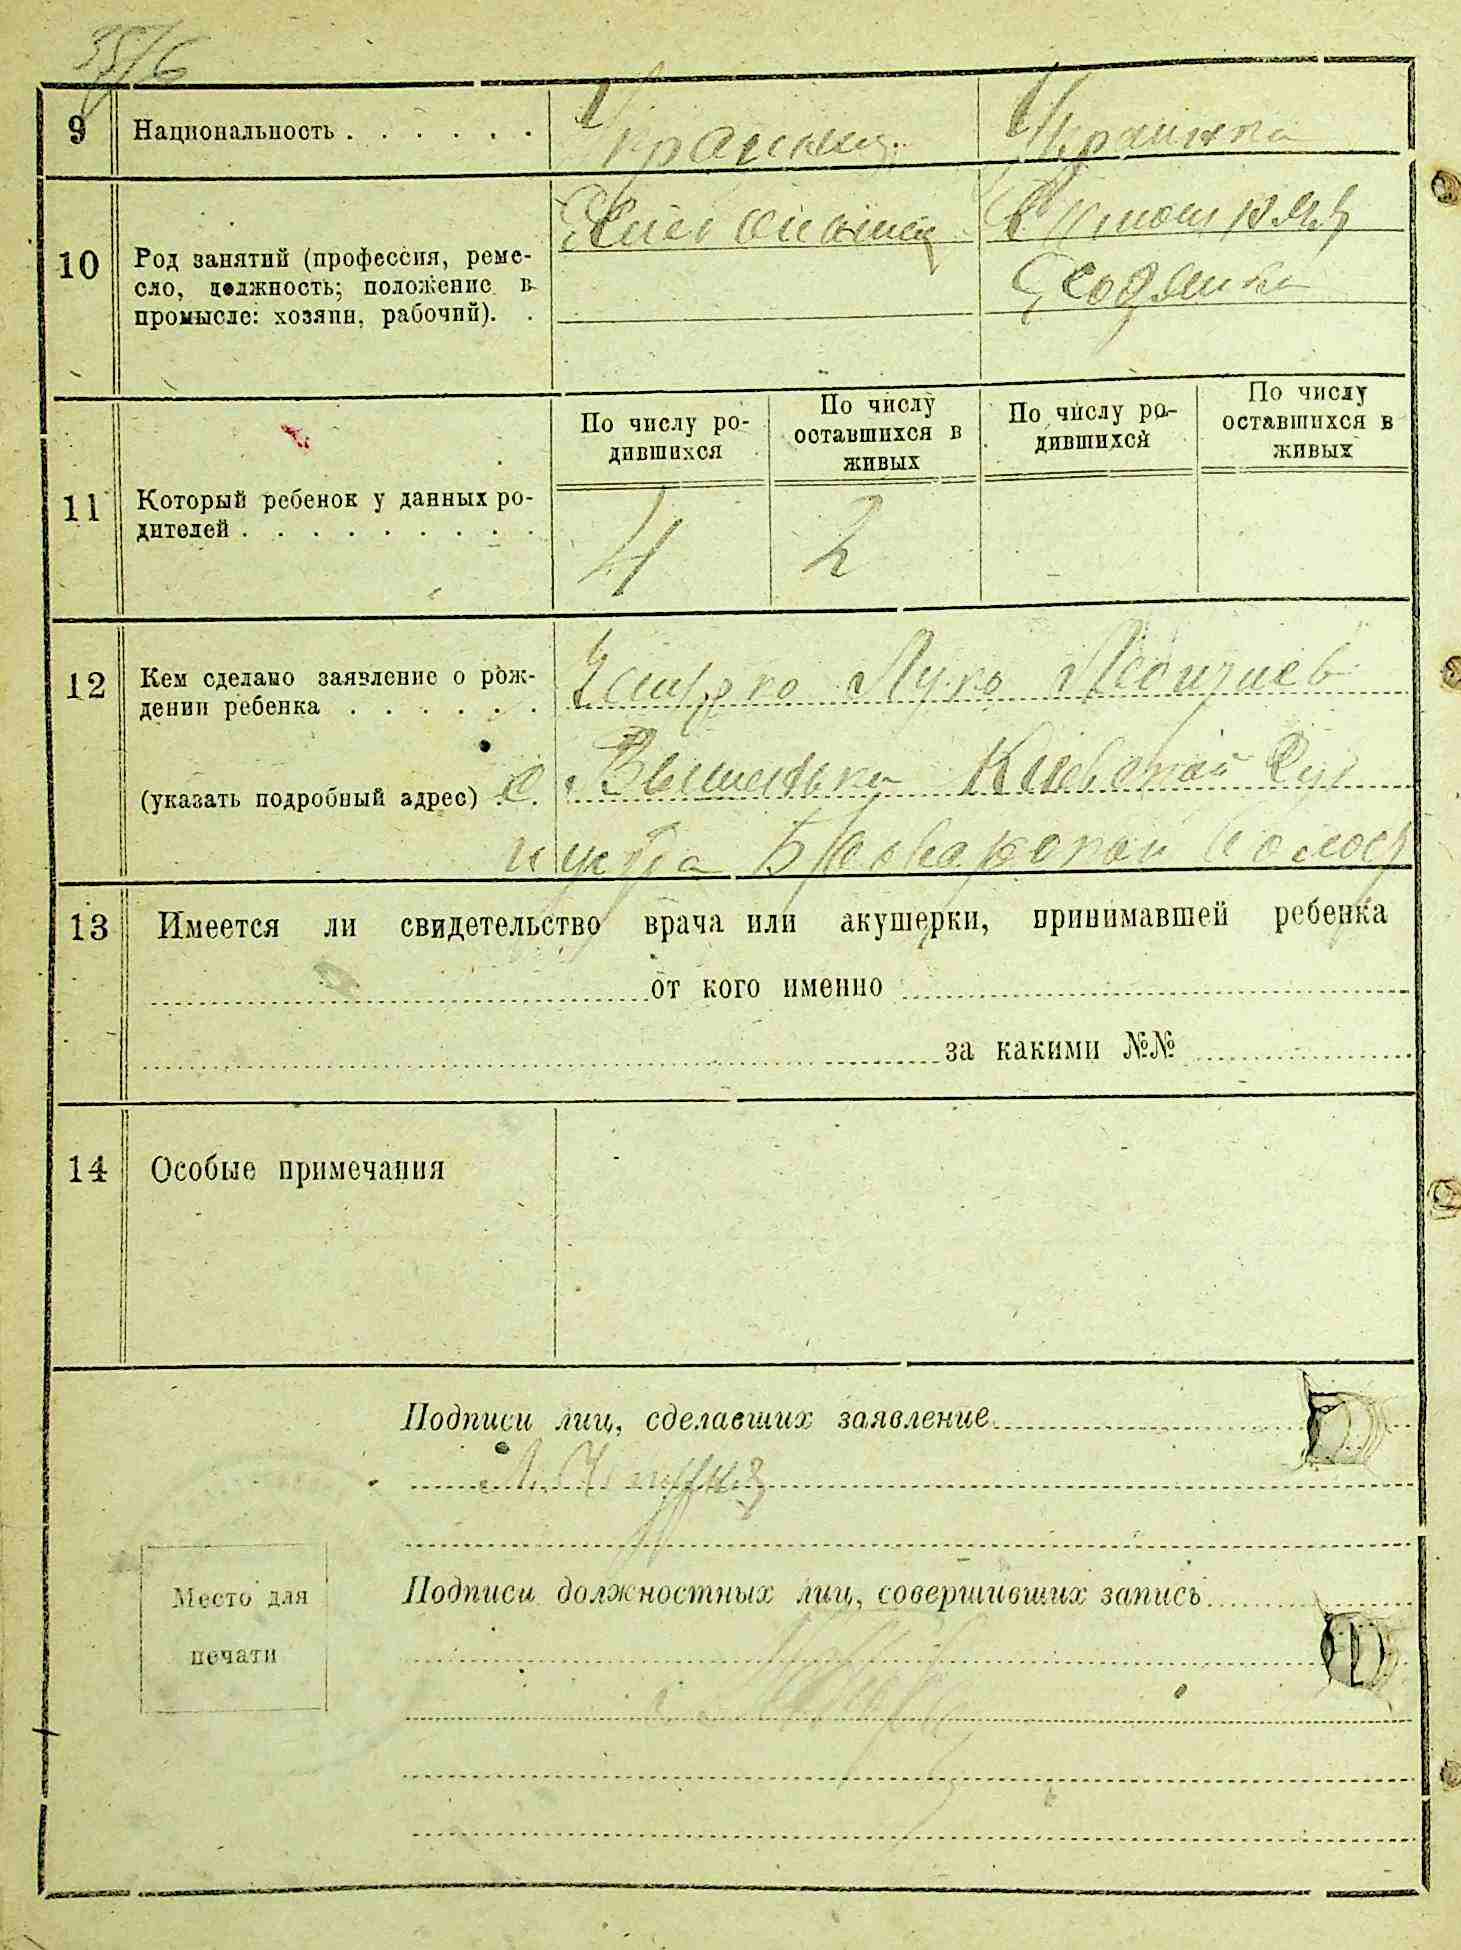 9 Национальность . . . . . . Украинец Украинка
10 Род занятий (профессия, реме-
сло, должность; положение в
промысле: хозяин, рабочий). .
По числу ро-
дившихся
По числу
оставшихся в
живых
По числу ро-
дившихся
По числу
оставшихся в
живых
11 Который ребенок у данных ро-
дителей . . . . . . . . . 4 2
12 Кем сделано заявление о рож-
дении ребенка . . . . . . Лука
(указать подробный адрес) . с. Вышеньки Киевской Губ
Броварской волост
13 Имеется ли свидетельство врача или акушерки, принимавшей ребенка
от кого именно
за какими №№
14 Особые примечания
Подписи лиц, сделавших заявление
Место для
печати
Подписи должностных лиц, совершивших запись